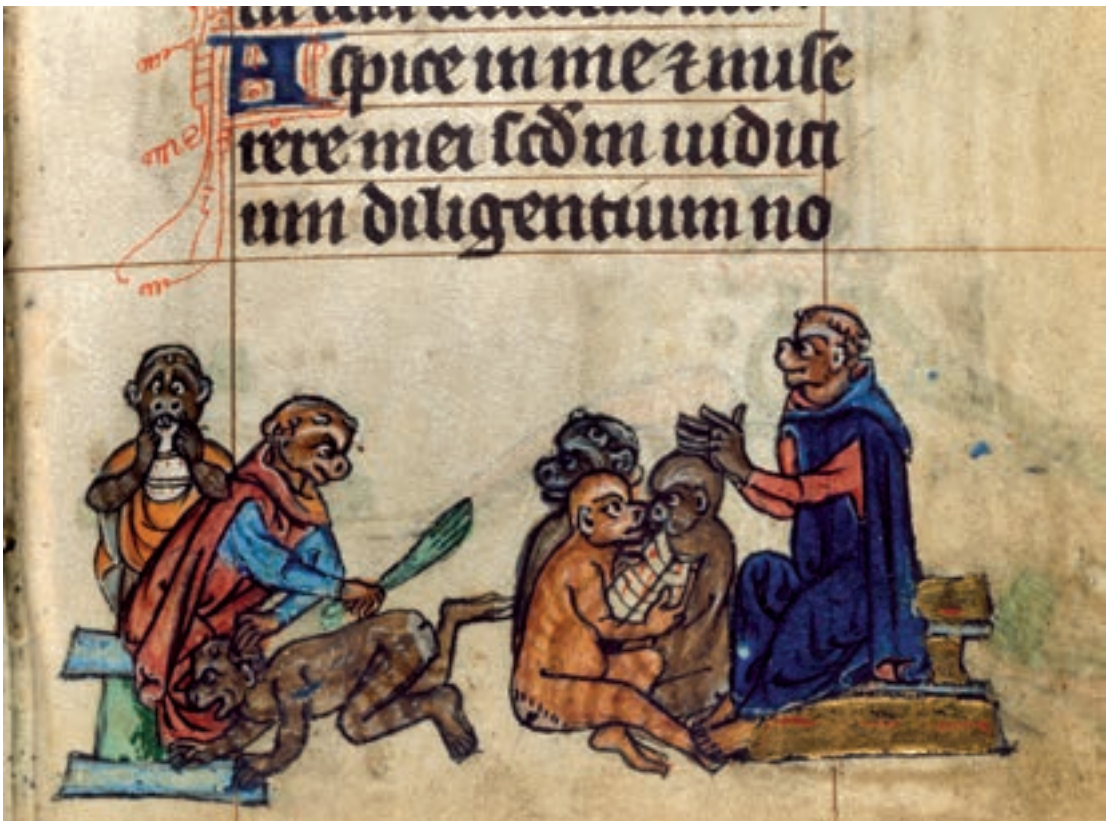 Aſpice in me ⁊ miſe
rere mei ſcd̄m iudici
um diligentium no